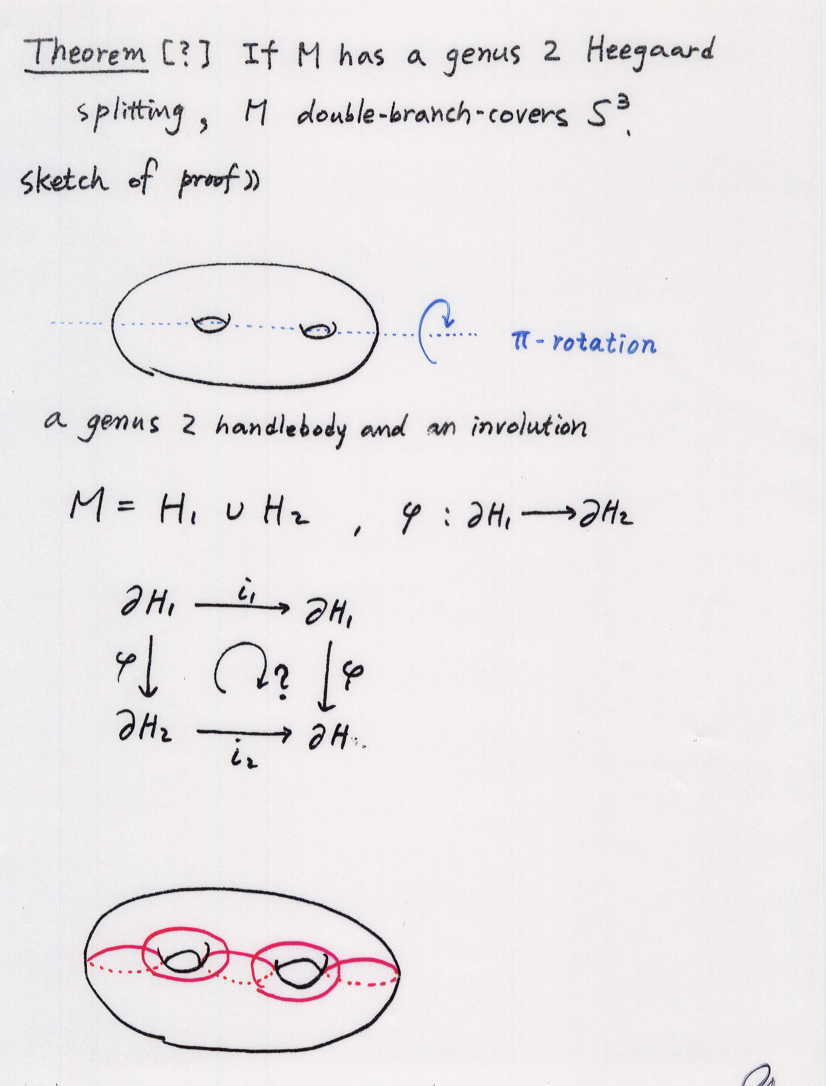 Theorem [?] If M has a genus 2 Heegaard
splitting, M double-branch-covers S³.
sketch of proof》
π-rotation
a genus 2 handlebody and an involution
M = H₁ ∪ H₂ , φ : ∂H₁ ⟶ ∂H₂
∂H₁ i₁ ∂H₁
φ ? φ
∂H₂ i₂ ∂H